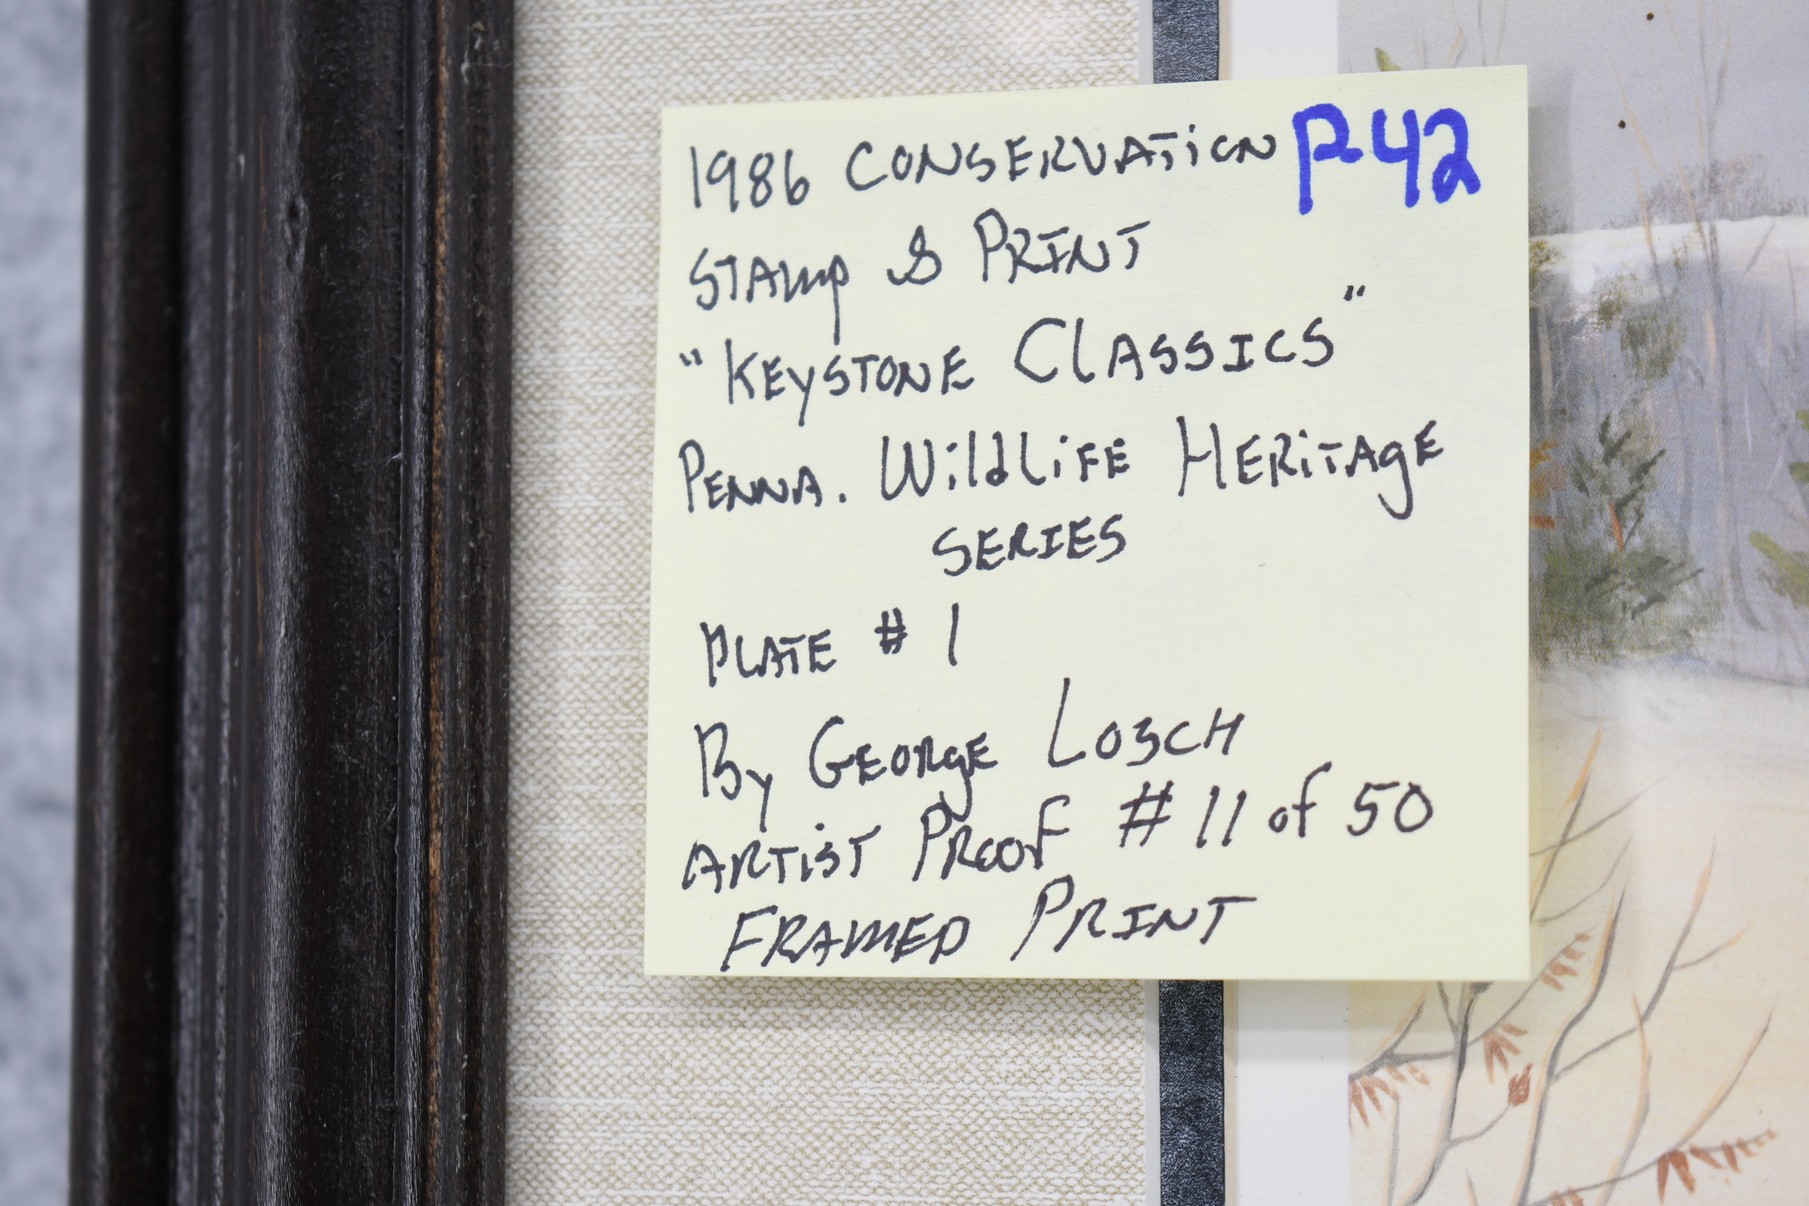 1986 CONSERVATION P-42
STAMP & PRINT
"KEYSTONE CLASSICS"
PENNA. WILDLIFE HERITAGE
SERIES
PLATE # 1
By GEORGE LOSCH
ARTIST PROOF # 11 of 50
FRAMED PRINT